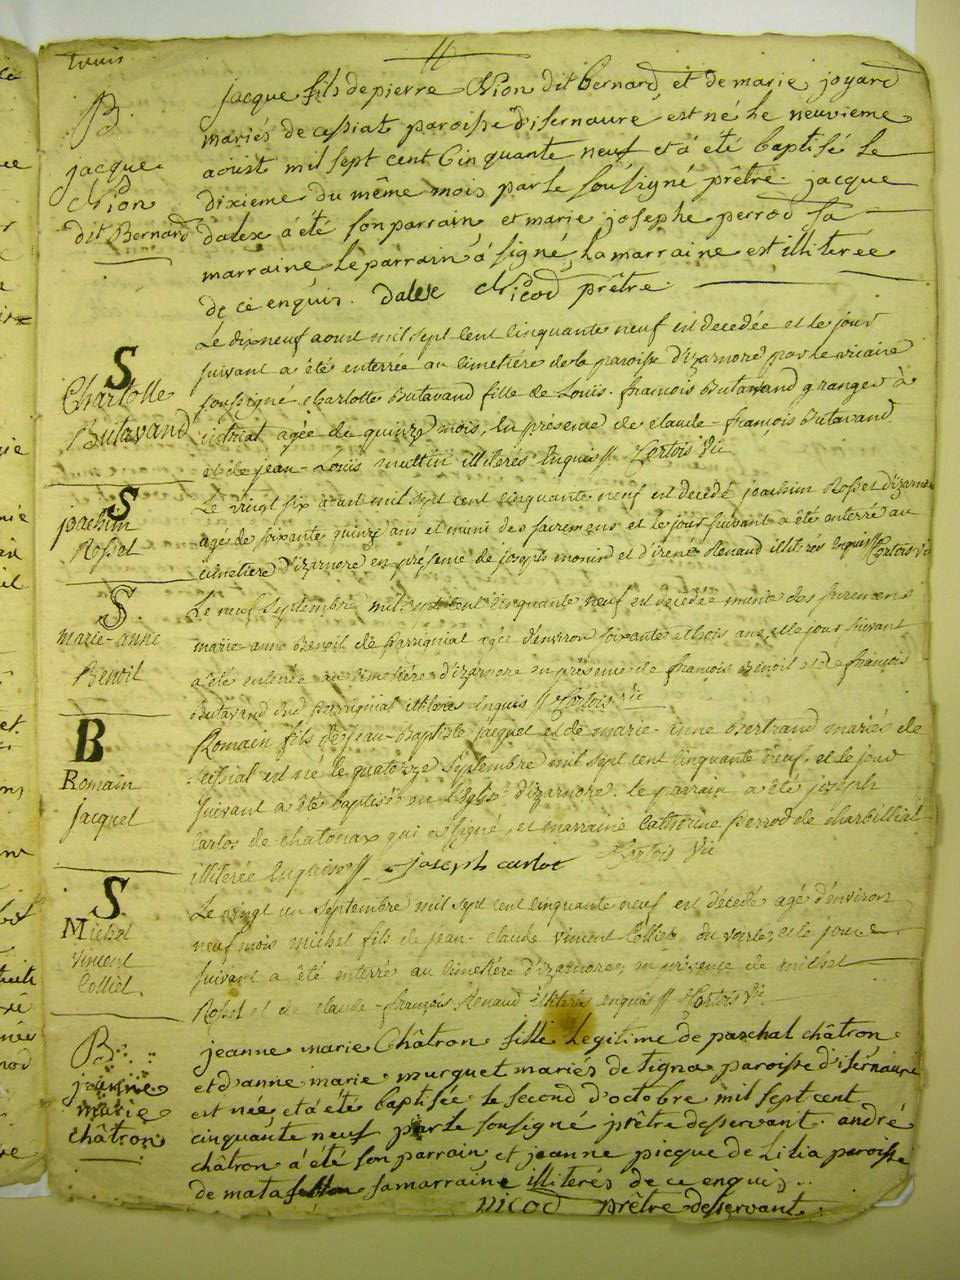 trois
B
jacque
Nion
dit Bernard
jacque fils de pierre Nion dit bernard, et de marie joyard
mariés de cessiat paroisse d'isernaure est né le neuvieme
aoust mil sept cent Cinquante neuf et à été baptisé le
dixieme du même mois par le soussigné prêtre. jacque
dalex à été son parrain, et marie josephe perrod sa
marraine le parrain à signé, la marraine est illiterée
de ce enquis. dalex Nicod prêtre
S
Charlotte
Butavand
Le dixneuf aoust mil sept cent cinquante neuf est decedée et le jour
suivant a été enterrée au cimetiére de la paroisse d'izarnore par le vicaire
soussigné Charlotte Butavand fille de Louis-françois Butavand granger à
agée de quinze mois, en présence de claude-françois Butavand
et de jean-Louis muttin illiterés enquis // Hortois Vic
S
joachim
Rosset
Le vingt six aoust mil sept cent cinquante neuf est decedé joachim Rosset d'izarnore
agé de soixante quinze ans et muni des sacremens et le jour suivant a été enterré au
cimetiere d'izarnore en présence de joseph monin et d'irené Renaud illiterés enquis // Hortois Vic
S
marie-anne
Benoit
Le neuf septembre mil sept cent cinquante neuf est decedée munie des sacremens
marie-anne Benoit de agée d'environ soixante et trois ans, et le jour suivant
a été enterrée au cimetiére d'izarnore en présence de françois Benoit et de françois
Butavand dud illiterés enquis // Hortois Vic
B
Romain
jacquet
Romain fils de jean-Baptiste jacquet et de marie-anne Bertrand mariés de
cessiat est né le quatorze septembre mil sept cent cinquante neuf, et le jour
suivant a été baptisé en l'Eglise d'izarnore. le parrain a été joseph
Carlos de Chatonax qui a signé, et marraine Catherine perrod de Charbilliat
illiterée Enquise // joseph carlot Hortois Vic
S
Michel
Vincent
Colliet
Le vingt un septembre mil sept cent cinquante neuf est décedé agé d'environ
neuf mois michel fils de jean-claude vincent Colliet du voerle, et le jour
suivant a été enterré au cimetiére d'izarnore, en présence de michel
Rosset et de claude-françois Renaud illiterés enquis // Hortois Vic
B
jeanne
marie
châtron
jeanne marie Châtron fille legitime de paschal châtron
et d'anne marie murguet mariés de tigna paroisse d'isernaure
est née et à été baptisée le second d'octobre mil sept cent
cinquante neuf par le soussigné prêtre desservant. andré
châtron à été son parrain, et jeanne picque de Lilia paroisse
de matafellon sa marraine illiterés de ce enquis..
nicod prêtre desservant.